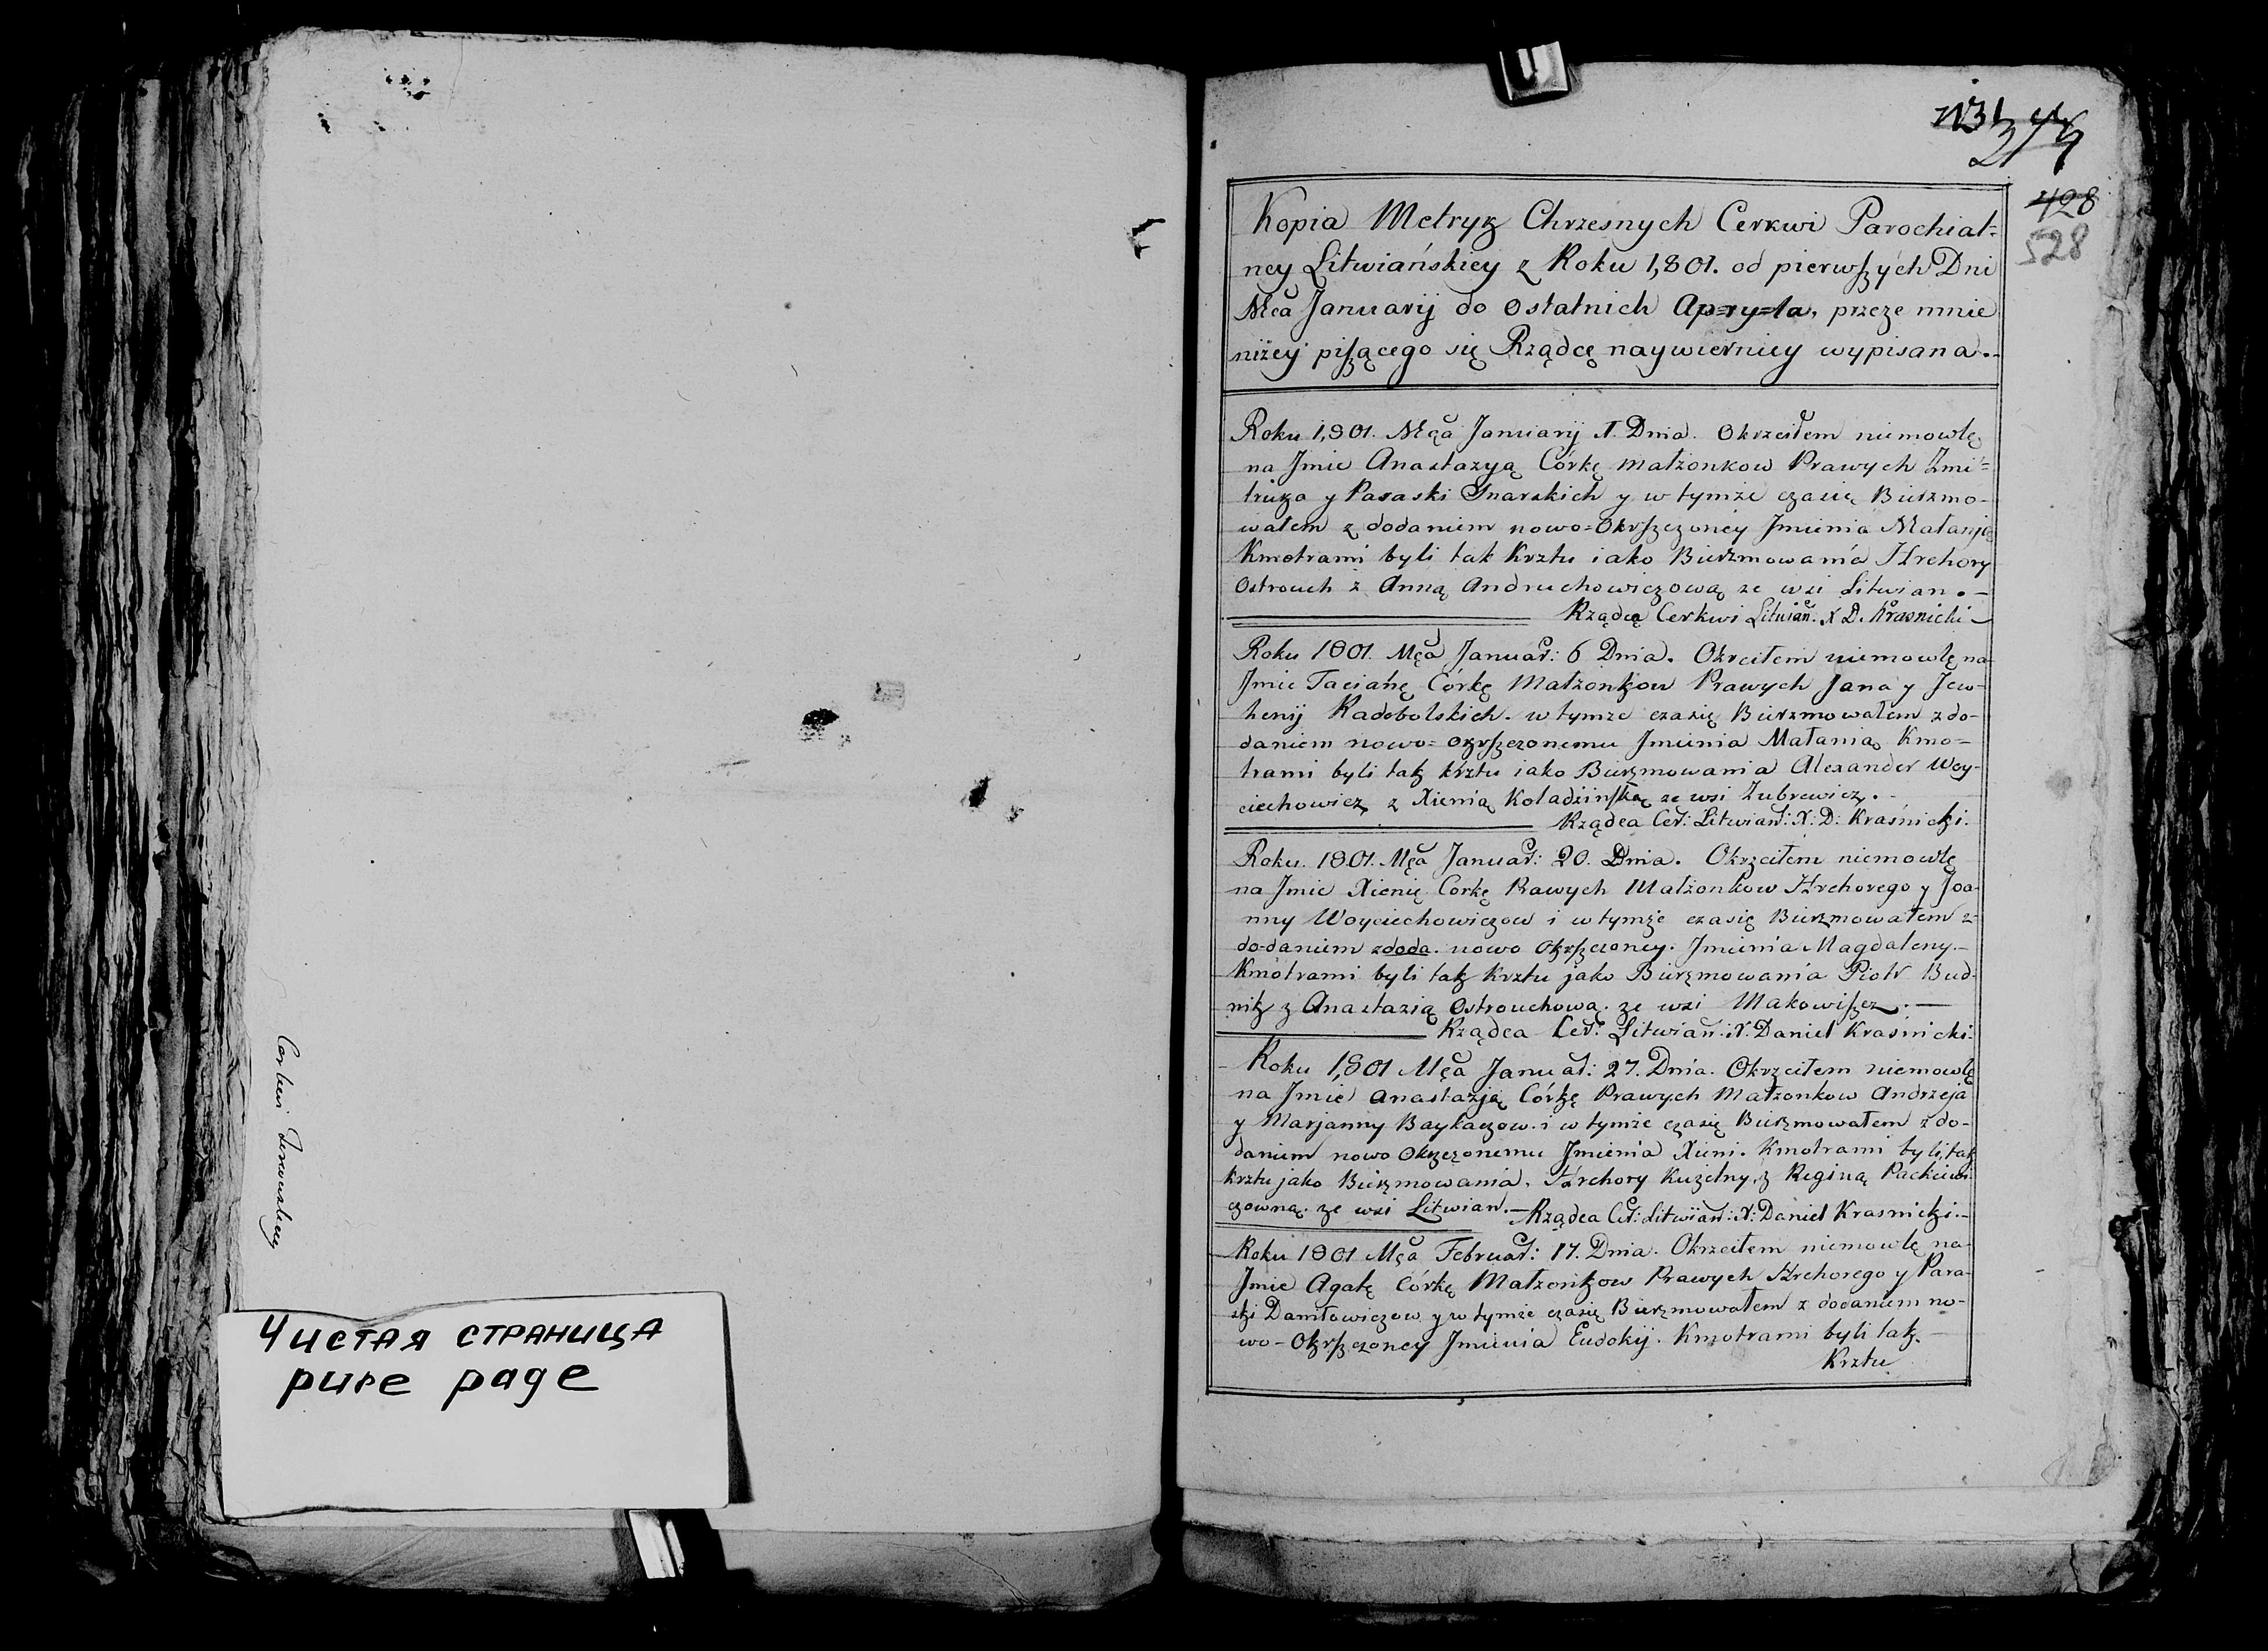 Cerkwi
Чистая страница
pure page
428
528
Kopia Metryk Chrzesnych Cerkwi Parochial=
ney Litwiańskiey z Roku 1,801. od pierwszych Dni
Mca Januarij do ostatnich Ap=ry=la, przeze mnie
niżey piszącego się Rządcę naywierniey wypisana.-
Roku 1,801. Mca Januarij 1. Dnia. Okrzciłem niemowlę
na Jmie Anastazyą Córkę małżonkow Prawych Zmi=
truka y Paraski Snarskich y w tymże czasię Bierzmo-
wałem z dodaniem nowo=Okrszczoney Jmienia Małanję
Kmotrami byli tak Krztu iako Bierzmowania Hrehory
Ostrouch z Anną Andruchowiczową ze wsi Litwian.-
Rządca Cerkwi Litwian. X D. Krasnicki
Roku 1801. Mca Januar: 6 Dnia. Okrciłem niemowlę na
Jmie Tacianę Córkę Małżonkow Prawych Jana y Jew-
henij Radobolskich. w tymże czasię Bierzmowałem z do-
daniem nowo=okrszczonemu Jmienia Małania Kmo-
trami byli tak krztu iako Bierzmowania Alexander Woy-
ciechowicz z Xienią Koladzińską ze wsi Zubrewicz.-
Rządca Cer: Litwian: X: D: Krasnicki.
Roku 1801. Mca Januar: 20. Dnia. Okrzciłem niemowlę
na Jmie Xienię Corkę Prawych Małżonkow Hrehorego y Joa-
nny Woyciechowiczow i w tymże czasię Bierzmowałem z
do-daniem zdoda. nowo Okrszczoney. Jmienia Magdaleny.-
Kmotrami byli tak Krztu jako Bierzmowania Piotr Bud-
nik z Anastazią Ostrouchową. ze wsi Makowiszcz.-
Rządca Cer: Litwian: X: Daniel Krasnicki.
Roku 1,801 Mca Januar: 27. Dnia. Okrzciłem niemowlę
na Jmie Anastazją Córkę Prawych Małżonkow Andrzeja
y Marjanny Baykaczow. i w tymże czasię Bierzmowałem z do-
daniem nowo Okrzczonemu Jmienia Xieni. Kmotrami byli, tak
krztu jako Bierzmowania. Hrehory Kuzelny, z Reginą Packiewi-
czowną. ze wsi Litwian.- Rządca Cer: Litwian: X: Daniel Krasnicki.-
Roku 1801 Mca Februar: 17. Dnia. Okrzciłem niemowlę na
Jmie Agatę Córkę Małżonkow Prawych Hrehorego y Para-
ski Daniłowiczow y w tymże czasię Bierzmowałem z dodaniem no-
wo-Okrszczoney Jmienia Eudokij. Kmotrami byli tak.-
Krztu